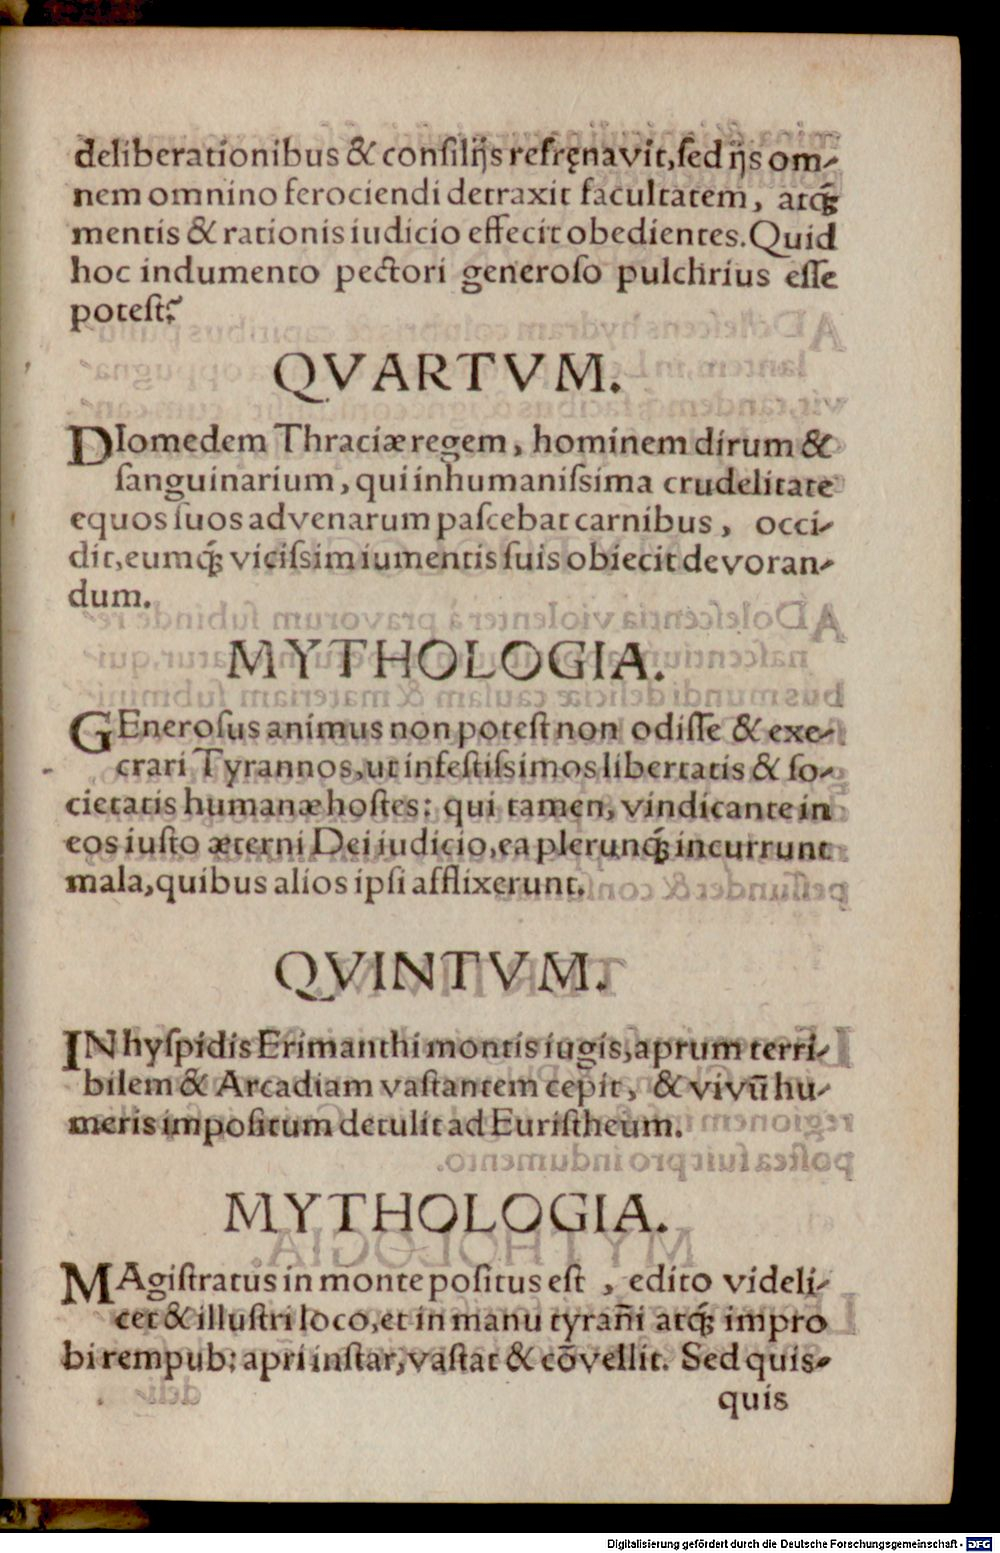 deliberationibus & consilijs refręnavit, sed ijs om-
nem omnino ferociendi detraxit facultatem, atq́;
mentis & rationis iudicio effecit obedientes. Quid
hoc indumento pectori generoso pulchrius esse
potest?
QVARTVM.
DIomedem Thraciæ regem, hominem dirum &
sanguinarium, qui inhumanissima crudelitate
equos suos advenarum pascebat carnibus, occi-
dit, eumq́; vicissim iumentis suis obiecit devoran-
dum.
MYTHOLOGIA.
GEnerosus animus non potest non odisse & exe-
crari Tyrannos, ut infestissimos libertatis & so-
cietatis humanæ hostes: qui tamen, vindicante in
eos iusto æterni Dei iudicio, ea plerunq́; incurrunt
mala, quibus alios ipsi afflixerunt.
QVINTVM.
IN hyspidis Erimanthi montis iugis, aprum terri-
bilem & Arcadiam vastantem cepit, & vivū hu-
meris impositum detulit ad Euristheum.
MYTHOLOGIA.
MAgistratus in monte positus est, edito videli-
cet & illustri loco, et in manu tyrañi atq́; impro
bi rempub: apri instar, vastat & cōvellit. Sed quis-
quis
Digitalisierung gefördert durch die Deutsche Forschungsgemeinschaft - DFG